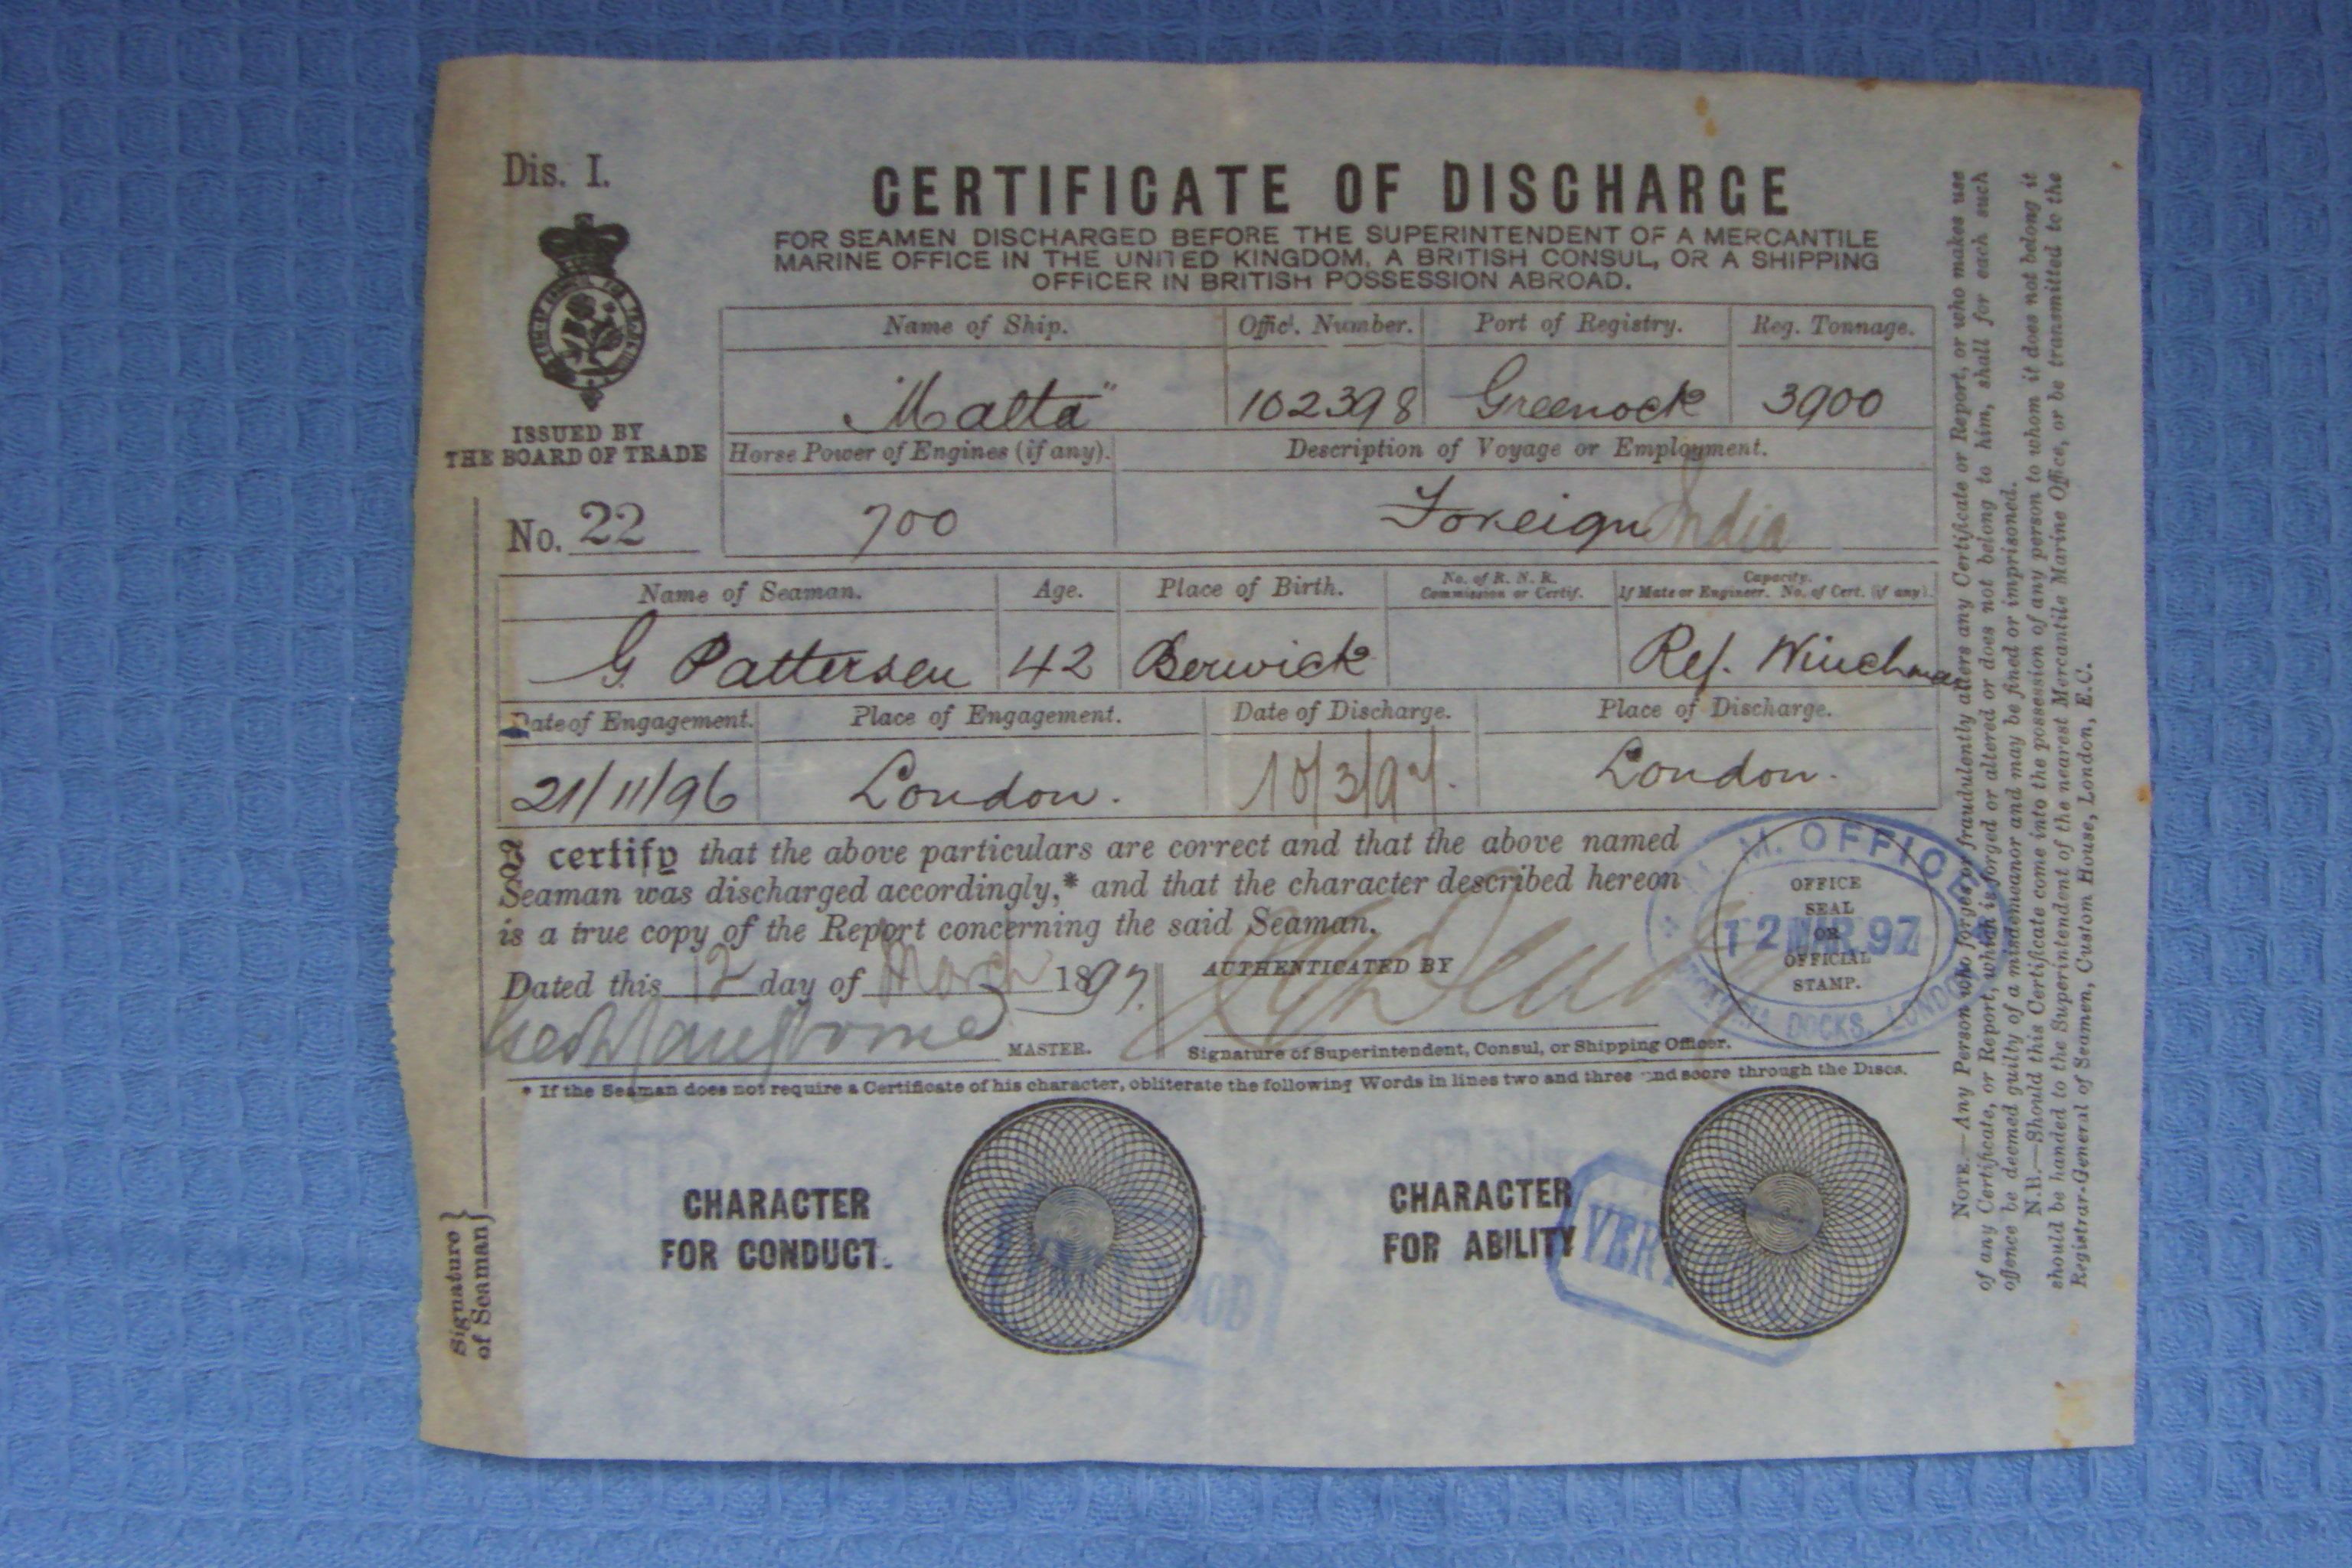 Dis. I.
CERTIFICATE OF DISCHARGE
FOR SEAMEN DISCHARGED BEFORE THE SUPERINTENDENT OF A MERCANTILE
MARINE OFFICE IN THE UNITED KINGDOM, A BRITISH CONSUL, OR A SHIPPING
OFFICER IN BRITISH POSSESSION ABROAD.
ISSUED BY
THE BOARD OF TRADE
No. 22
Name of Ship. Offic'. Number. Port of Registry. Reg. Tonnage.
"Malta" 102398 Greenock 3900
Horse Power of Engines (if any). Description of Voyage or Employment.
700 Foreign India
Name of Seaman. Age. Place of Birth. No. of R. N. R. Commission or Certif. Capacity. If Mate or Engineer. No. of Cert. (if any).
G. Pattersen 42 Berwick Ref. Winchman
Date of Engagement. Place of Engagement. Date of Discharge. Place of Discharge.
21/11/96 London. 10/3/97. London.
I certify that the above particulars are correct and that the above named
Seaman was discharged accordingly,* and that the character described hereon
is a true copy of the Report concerning the said Seaman.
Dated this 12 day of March 1897.
AUTHENTICATED BY
MASTER.
Signature of Superintendent, Consul, or Shipping Officer.
M. OFFICE
OFFICE
SEAL
OR
OFFICIAL
STAMP.
12 MAR. 97
DOCKS. LONDON
* If the Seaman does not require a Certificate of his character, obliterate the following Words in lines two and three and score through the Discs.
CHARACTER
FOR CONDUCT.
CHARACTER
FOR ABILITY
VERY
Signature
of Seaman
NOTE.—Any Person who forges or fraudulently alters any Certificate or Report, or who makes use
of any Certificate, or Report, which is forged or altered or does not belong to him, shall for each such
offence be deemed guilty of a misdemeanor and may be fined or imprisoned.
N.B.—Should this Certificate come into the possession of any person to whom it does not belong it
should be handed to the Superintendent of the nearest Mercantile Marine Office, or be transmitted to the
Registrar-General of Seamen, Custom House, London, E.C.